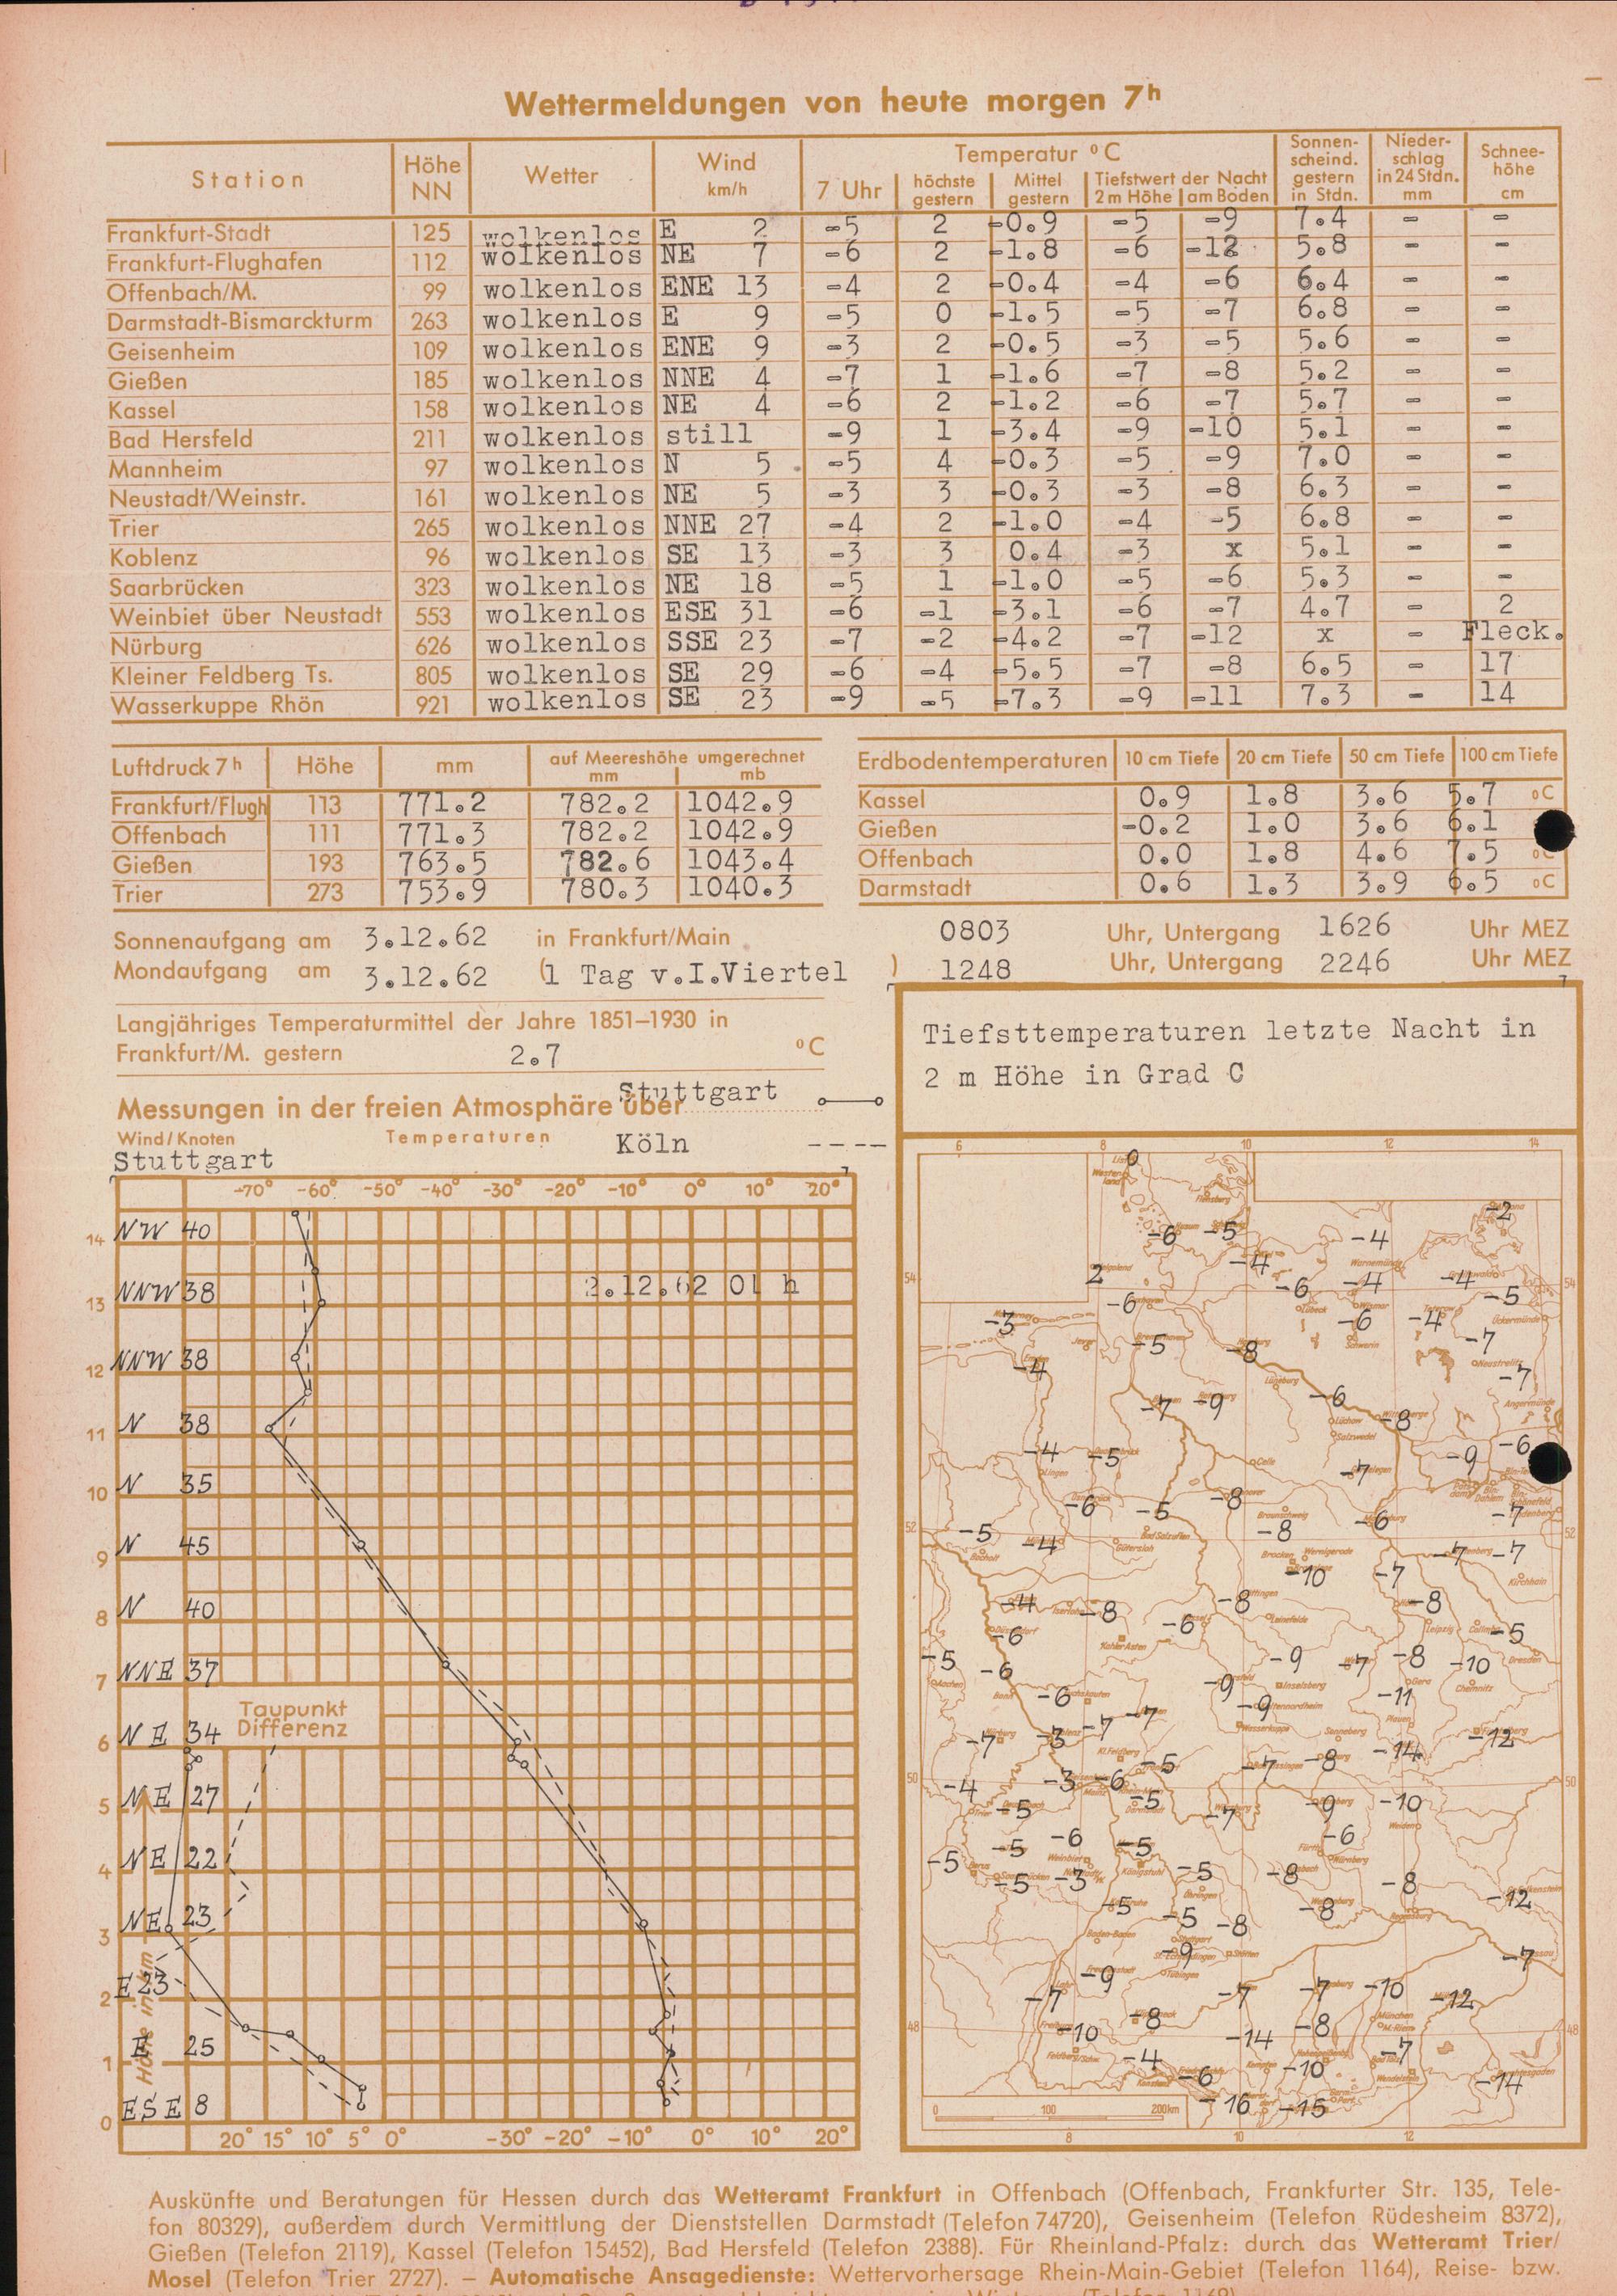 Wettermeldungen von heute morgen 7h
Station Höhe NN Wetter Wind km/h Temperatur °C Sonnenscheind. gestern in Stdn. Niederschlag in 24 Stdn. mm Schneehöhe cm
7 Uhr höchste gestern Mittel gestern Tiefstwert der Nacht 2 m Höhe am Boden
Frankfurt-Stadt 125 wolkenlos E 2 -5 2 -0.9 -5 -9 7.4 - -
Frankfurt-Flughafen 112 wolkenlos NE 7 -6 2 -1.8 -6 -12 5.8 - -
Offenbach/M. 99 wolkenlos ENE 13 -4 2 -0.4 -4 -6 6.4 - -
Darmstadt-Bismarckturm 263 wolkenlos E 9 -5 0 -1.5 -5 -7 6.8 - -
Geisenheim 109 wolkenlos ENE 9 -3 2 -0.5 -3 -5 5.6 - -
Gießen 185 wolkenlos NNE 4 -7 1 -1.6 -7 -8 5.2 - -
Kassel 158 wolkenlos NE 4 -6 2 -1.2 -6 -7 5.7 - -
Bad Hersfeld 211 wolkenlos still -9 1 -3.4 -9 -10 5.1 - -
Mannheim 97 wolkenlos N 5 -5 4 -0.3 -5 -9 7.0 - -
Neustadt/Weinstr. 161 wolkenlos NE 5 -3 3 -0.3 -3 -8 6.3 - -
Trier 265 wolkenlos NNE 27 -4 2 -1.0 -4 -5 6.8 - -
Koblenz 96 wolkenlos SE 13 -3 3 0.4 -3 x 5.1 - -
Saarbrücken 323 wolkenlos NE 18 -5 1 -1.0 -5 -6 5.3 - -
Weinbiet über Neustadt 553 wolkenlos ESE 31 -6 -1 -3.1 -6 -7 4.7 - 2
Nürburg 626 wolkenlos SSE 23 -7 -2 -4.2 -7 -12 x - Fleck.
Kleiner Feldberg Ts. 805 wolkenlos SE 29 -6 -4 -5.5 -7 -8 6.5 - 17
Wasserkuppe Rhön 921 wolkenlos SE 23 -9 -5 -7.3 -9 -11 7.3 - 14
Luftdruck 7h Höhe mm auf Meereshöhe umgerechnet mm mb
Frankfurt/Flugh 113 771.2 782.2 1042.9
Offenbach 111 771.3 782.2 1042.9
Gießen 193 763.5 782.6 1043.4
Trier 273 753.9 780.3 1040.3
Erdbodentemperaturen 10 cm Tiefe 20 cm Tiefe 50 cm Tiefe 100 cm Tiefe
Kassel 0.9 1.8 3.6 5.7 °C
Gießen -0.2 1.0 3.6 6.1
Offenbach 0.0 1.8 4.6 7.5 °C
Darmstadt 0.6 1.3 3.9 6.5 °C
Sonnenaufgang am 3.12.62 in Frankfurt/Main 0803 Uhr, Untergang 1626 Uhr MEZ
Mondaufgang am 3.12.62 (1 Tag v.I.Viertel ) 1248 Uhr, Untergang 2246 Uhr MEZ
Langjähriges Temperaturmittel der Jahre 1851–1930 in
Frankfurt/M. gestern 2.7 °C
Messungen in der freien Atmosphäre über Stuttgart
Wind/Knoten Temperaturen Köln ----
Stuttgart
-70° -60° -50° -40° -30° -20° -10° 0° 10° 20°
NW 40
14
2.12.62 01 h
NNW 38
13
NNW 38
12
N 38
11
N 35
10
N 45
9
N 40
8
NNE 37
7
Taupunkt
Differenz
NE 34
6
NE 27
5
NE 22
4
NE 23
3
E 23
2
E 25
1
Höhe in km
ESE 8
0
20° 15° 10° 5° 0° -30° -20° -10° 0° 10° 20°
Tiefsttemperaturen letzte Nacht in
2 m Höhe in Grad C
6 8 10 12 14
0 -2
-6 -5 -4
2 -4 -6 -4 -4 -5
-3 -6 -5 -8 -6 -4 -7
-4 -7 -9 -6 -8 -7
-4 -5 -7 -9 -6
-6 -5 -8 -8 -6 -7
-5 -4 -10 -7 -7 -7
-4 -8 -6 -8 -8 -5
-6 -5 -6 -9 -7 -8 -10
-6 -9 -9 -11
-7 -3 -7 -7 -14 -12
-4 -3 -6 -5 -7 -8
-5 -5 -7 -9 -10
-5 -5 -6 -5 -6
-5 -3 -5 -8 -8 -12
-5 -5 -8 -8
-9 -7
-7 -9 -7 -7 -10 -12
-10 -8 -14 -8 -7
-4 -6 -10 -14
-16 -15
54 54
52 52
50 50
48 48
0 100 200km
8 10 12
Auskünfte und Beratungen für Hessen durch das Wetteramt Frankfurt in Offenbach (Offenbach, Frankfurter Str. 135, Tele-
fon 80329), außerdem durch Vermittlung der Dienststellen Darmstadt (Telefon 74720), Geisenheim (Telefon Rüdesheim 8372),
Gießen (Telefon 2119), Kassel (Telefon 15452), Bad Hersfeld (Telefon 2388). Für Rheinland-Pfalz: durch das Wetteramt Trier/
Mosel (Telefon Trier 2727). – Automatische Ansagedienste: Wettervorhersage Rhein-Main-Gebiet (Telefon 1164), Reise- bzw.